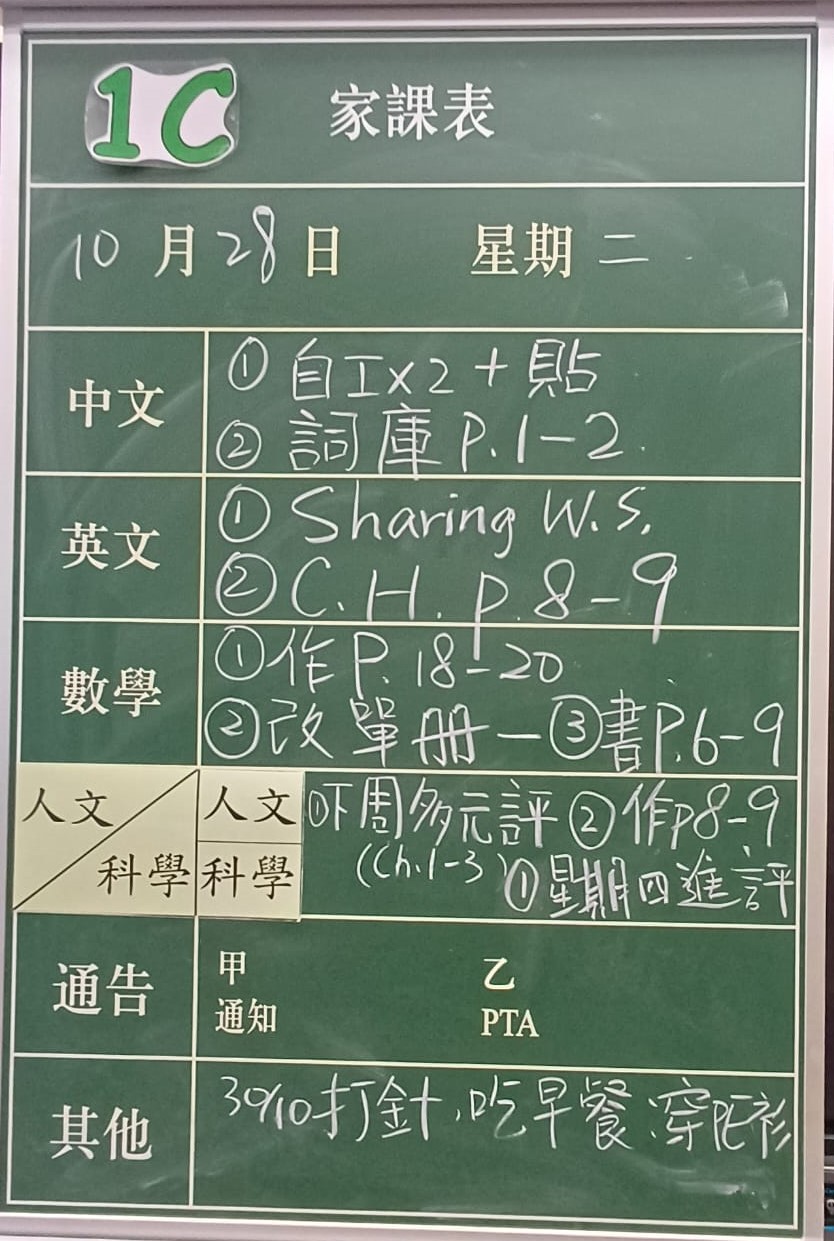 1C 家課表
10月28日 星期二
中文
① 自工x2+貼
② 詞庫P.1-2.
英文
① Sharing W.S.
② C.H. p.8-9
數學
①作P.18-20
②改單冊 — ③書P.6-9
人文
科學
人文
①下周多元評 ②作p8-9
(Ch.1-3)
科學
①星期四進評
通告
甲 乙
通知 PTA
其他
30/10打針，吃早餐，穿PE衫